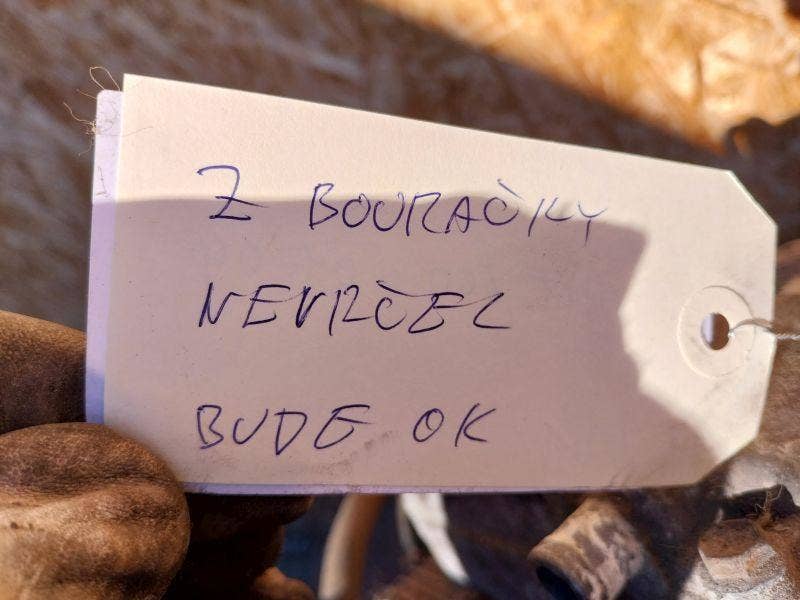 Z BOURAČKY
NEVRČEL
BUDE OK